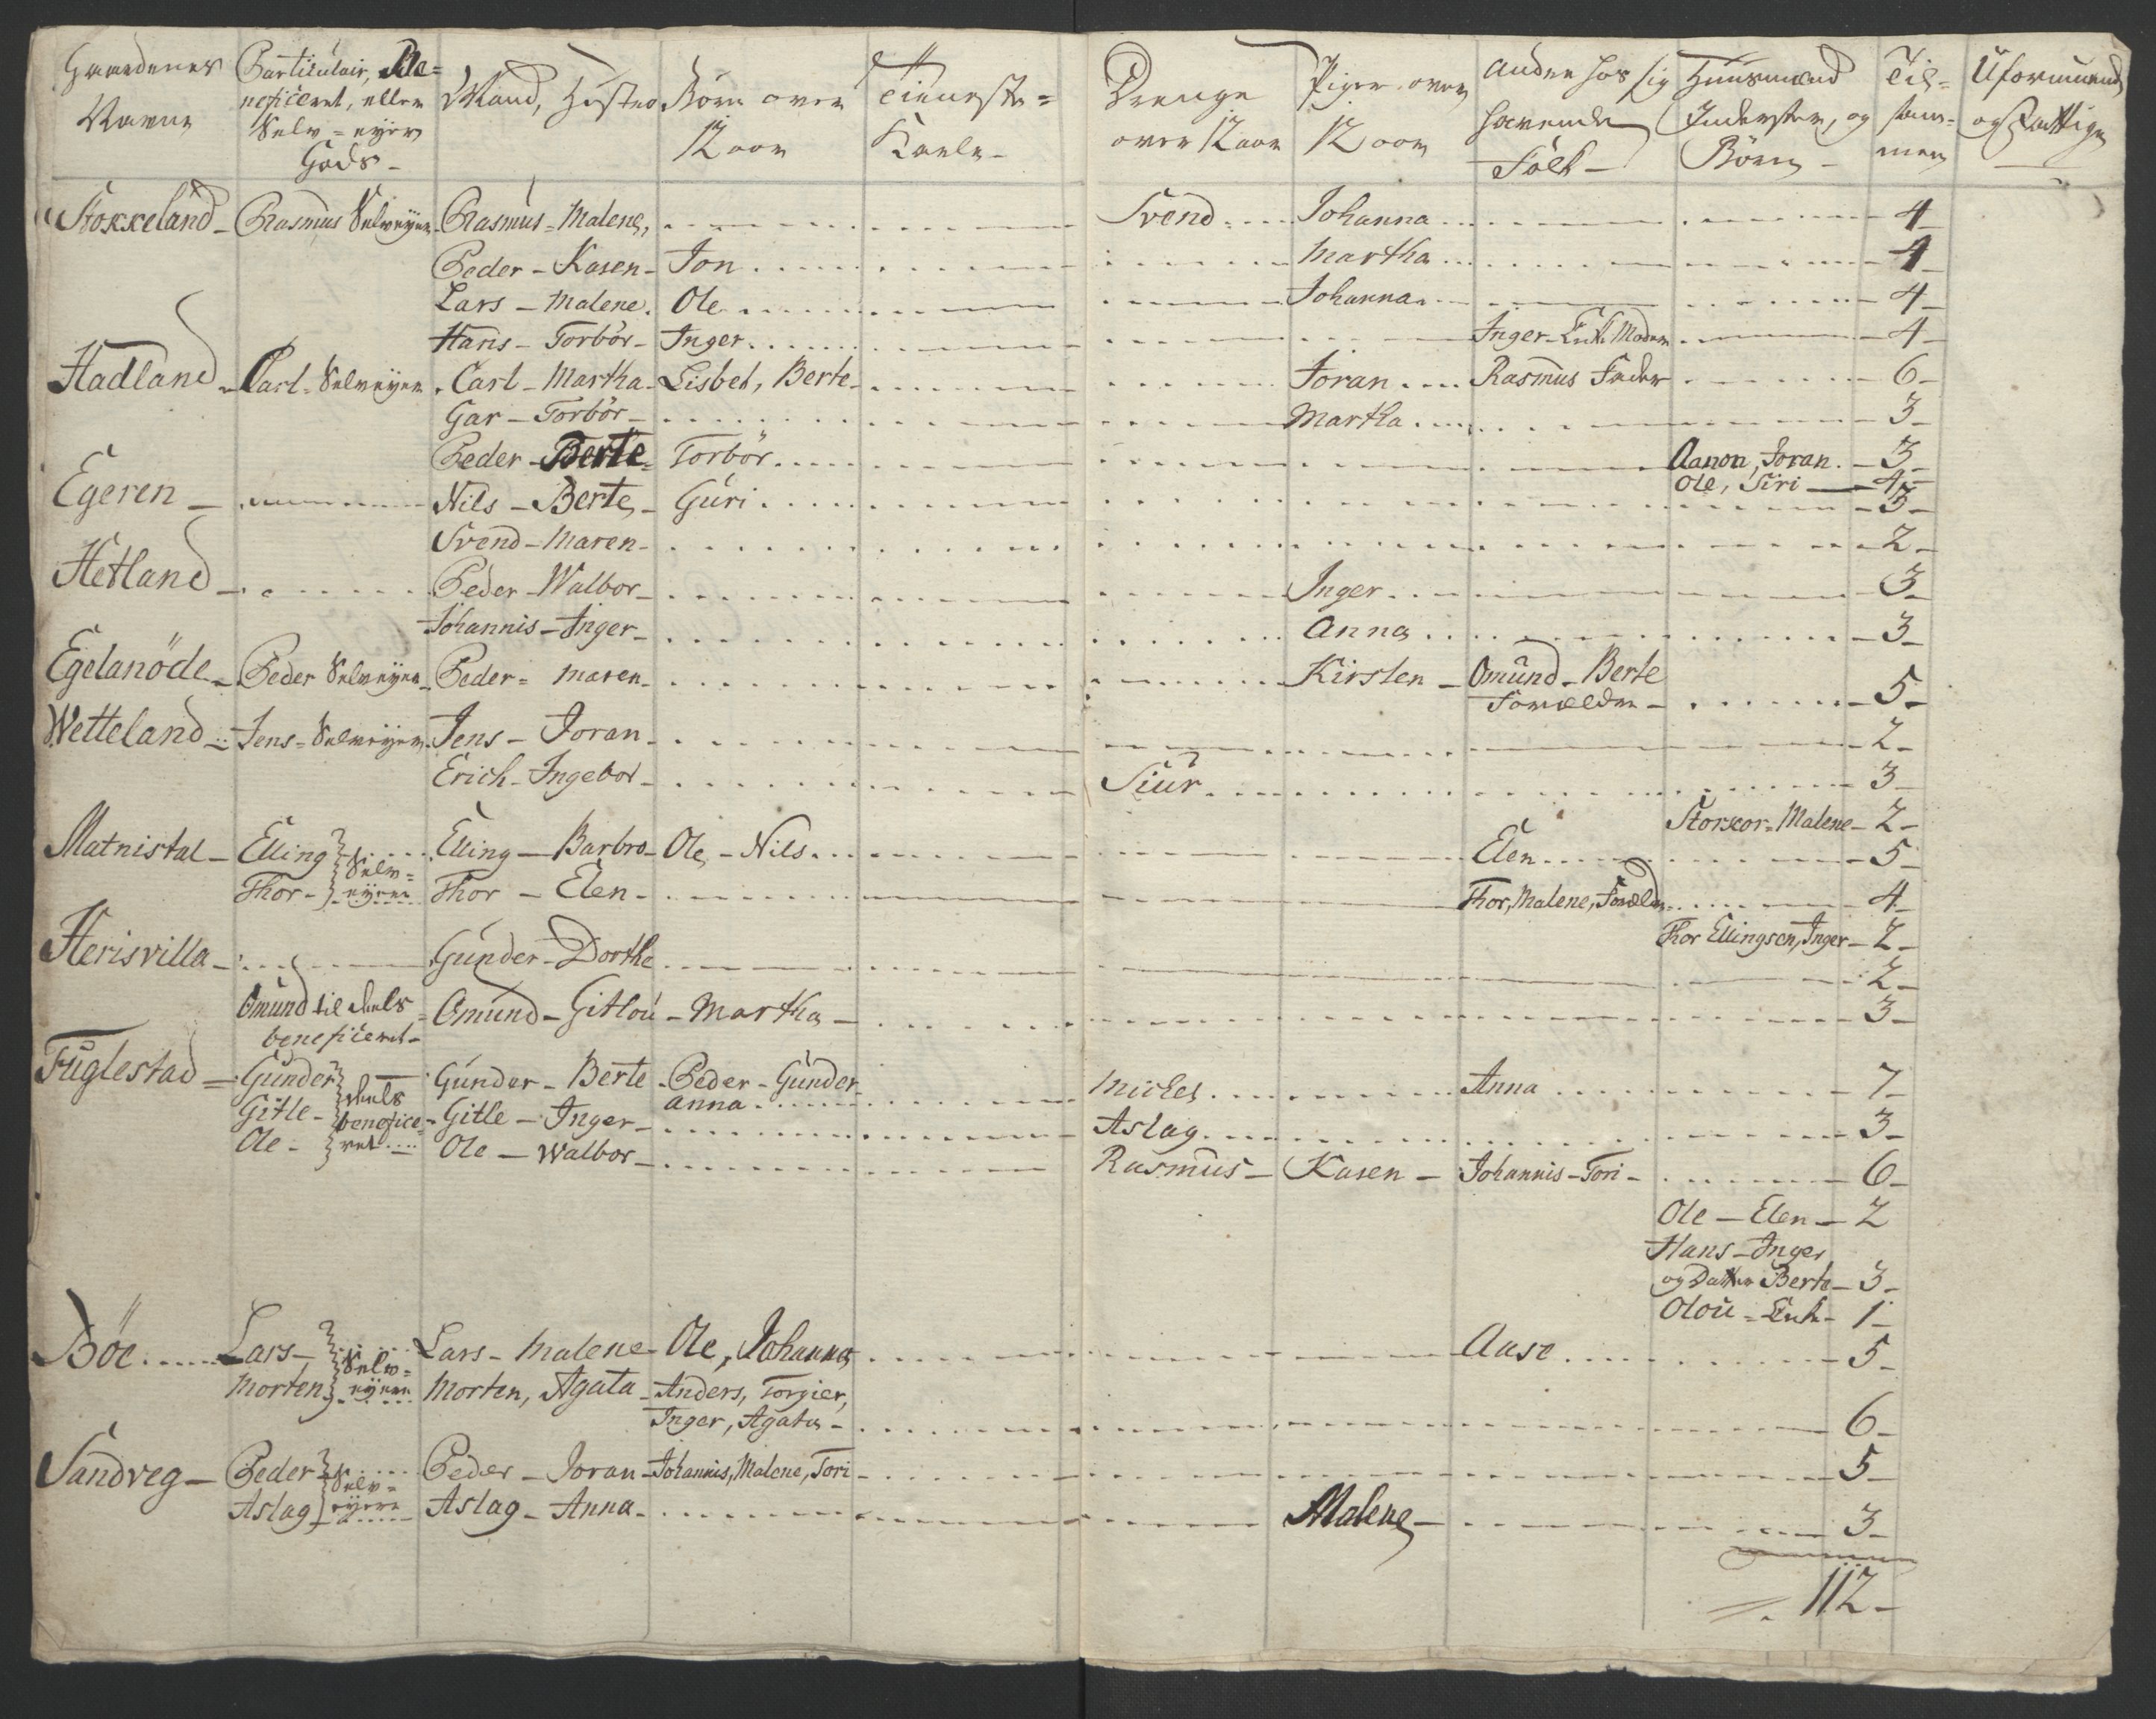 Gaardenes Navne | Particulair, Be=neficeret, eller Selv=eyer Gods - | Mand, Hustro | Börn over 12 aar | Tieneste=Karle - | Drenge over 12 aar | Piger over 12 aar | Anden hos sig havende Folk - | Huusmænd Inderster, og Börn - | Til=sam=men | Uformuend og Fattige
Stokkeland - Rasmus Selveyer - Rasmus = Malene, Svend Johanna 4 -
Peder - Karen - Jon Martha 4 -
Lars - Malene. Ole Johanna 4 -
Hans - Torbör - Inger Inger - Enk. Moder 4 -
Hadland - Carl = Selveyer - Carl - Martha - Lisbet, Berte - Joran Rasmus Fader 6 -
Gar - Torbör - Martha 3 -
Peder - Berte = Torbör 3 -
Aanon, Joran.
Ole, Siri - 4 -
Egeren - Nils - Berte, - Guri 3 -
Svend - Maren - 2 -
Hetland - Peder - Walbor - Inger 3 -
Johannis - Inger - Anna 3 -
Egelanöde - Peder Selveyer - Peder = Maren - Kirsten - Omund - Berte
Forældre - 5 -
Wetteland - Jens = Selveyer. Jens - Joran - 2 -
Erich - Ingebor - Siur 3 -
Storkor = Malene - 2 -
Matnistal - Elling Elling - Barbro - Ole, - Nils Elen 5 -
Selv=
Thor - eyere Thor - Elen - Thor, Malene, Foreldre 4 -
Thor Ellingsen, Inger - 2 -
Herisvilla - Gunder - Dorthe 2 -
Omund til deels = Omund - Gitlou - Martha - 3 -
beneficeret -
Fuglestad = Gunder Gunder - Berte - Peder - Gunder Michel Anna 7 -
deels
Anna
Gitle - benefice= Gitle - Inger - Aslag 3 -
Ole - ret Ole - Walbor - Rasmus - Karen - Johannis - Tori - 6 -
Ole - Elen - 2
Hans - Inger
og Datter Berte - 3 -
Olou = Enk - 1 -
Böe Lars - Lars - Malene - Ole, Johanna Aase 5 -
Selv=
Morten eyere Morten, Agata - Anders, Torgier,
Inger, Agata - 6 -
Sandveg - Peder Peder - Joran - Johannis, Malene, Tori - 5 -
Selv=
Aslag eyere Aslag - Anna - Malene - 3 -
112 -